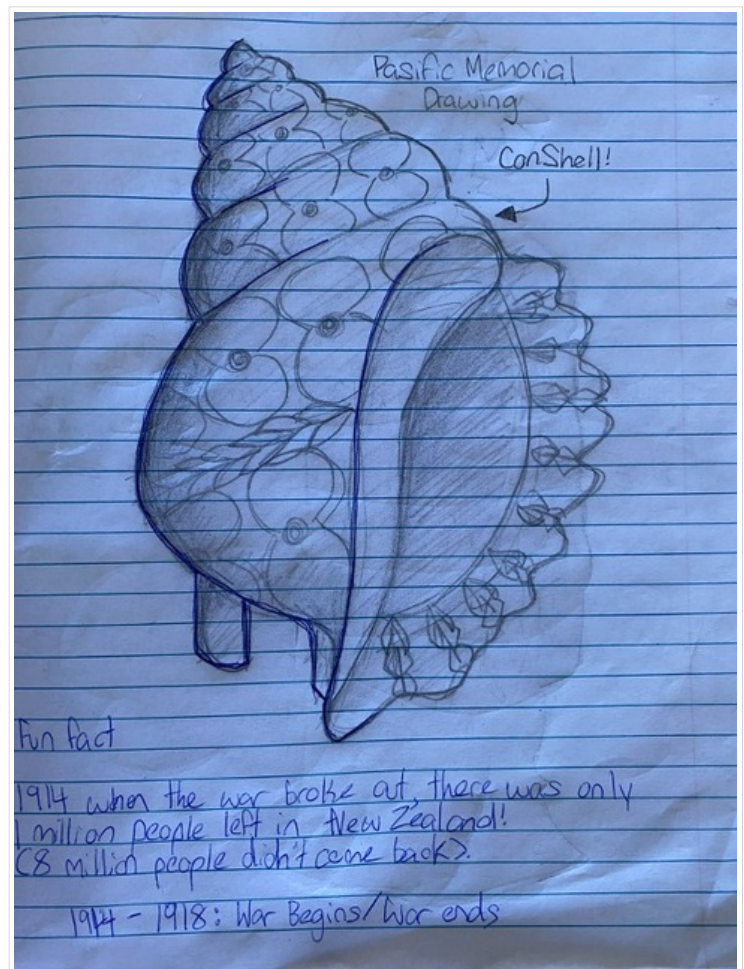 Pasific Memorial
Drawing
ConShell!
Fun fact
1914 when the war broke out, there was only
1 million people left in New Zealand!
(8 million people didn't come back).
1914 - 1918: War Begins/War ends